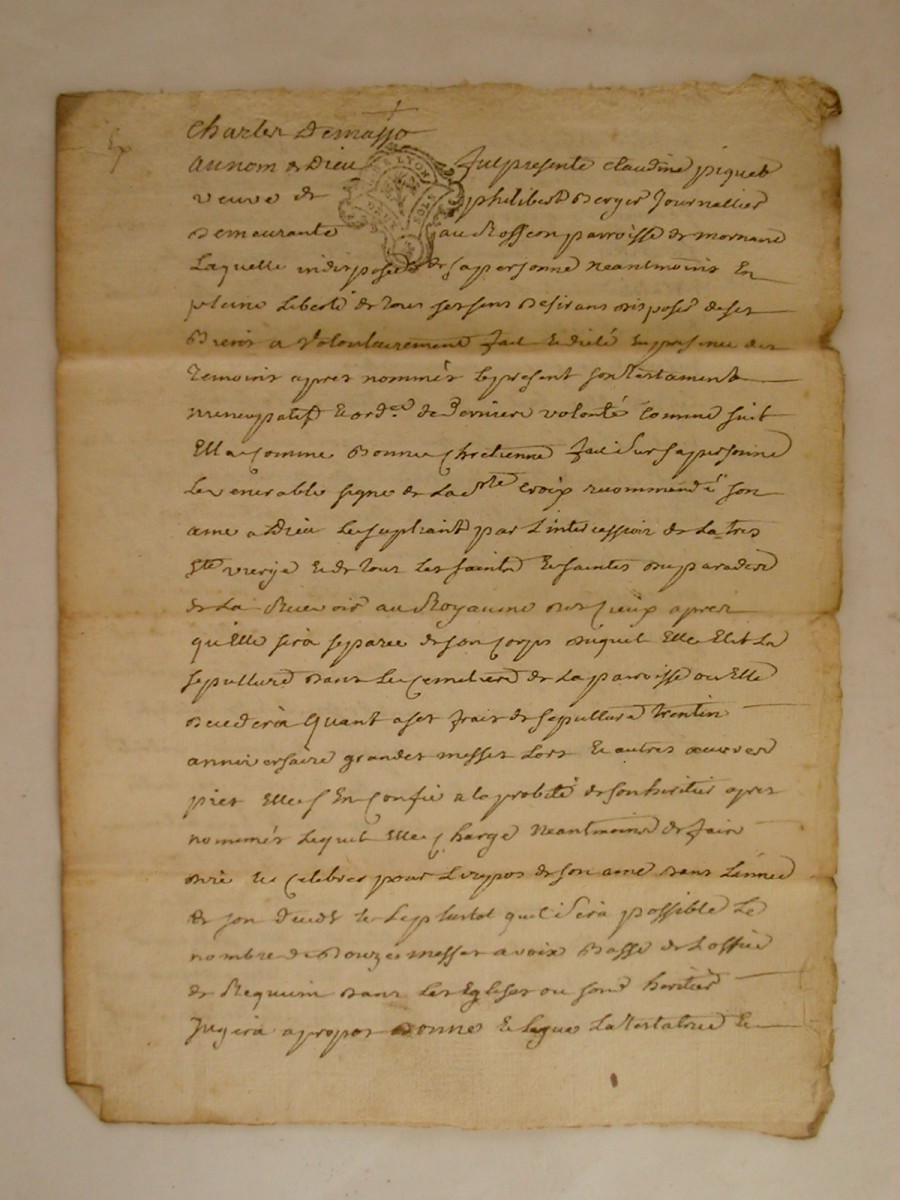 Charles Demasso
au nom de Dieu fut presente claudine piquet
veuve de philibert Berger Journallier
Demeurante au Rosseon parroisse de mornand
Laquelle indisposée de sa personne neantmoins En
pleine Liberté de tous ses sens Desirans disposer de ses
Biens a volontairement fait et dicté En presence des
temoins apres nommés le present son testament
nuncupatif et ord.ce de Derniere volonté Comme suit
Elle comme Bonne Chretienne fait sur sa personne
Le venerable signe de La ste croix recommendé son
ame a Dieu Le supliant par L'intercession de La tres
ste vierge et de tous Les saints et saintes du paradis
de La Recevoir au Royaume des Cieux apres
qu'Elle sera separée de son corps duquel Elle Elit La
sepulture dans Le Cemetiere de La paroisse ou Elle
Decedera Quant a ses frais de sepulture trentin
anniversaire grandes messes Lors et autres œuvres
pies Elle s'En Confie a la probité de son heritier apres
nommés Lequel Elle Charge Neantmoins de faire
dire et Celebrer pour Le repos de son ame dans L'année
de son deceds et Le plustot qu'il sera possible Le
nombre de Douze messes a voix Basse de L'office
de Requiem dans Les Eglises ou sond heritier
Jugera apropos Donne et Legue La testatrice et